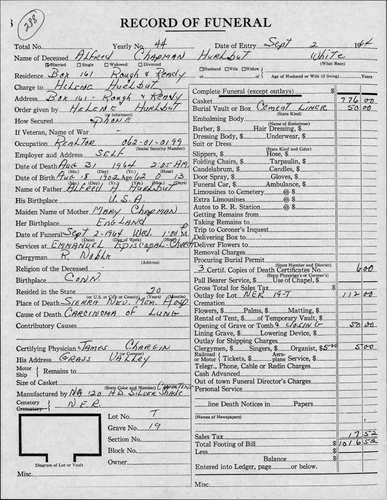 288
RECORD OF FUNERAL
Total No. Yearly No. 44 Date of Entry Sept 2 1964
Name of Deceased Alfred Chapman Hurlbut White
(What Race)
Married Single Widowed Divorced Husband Wife Widow of Age of Husband or Wife (if living) Years
Residence Box 141 Rough & Ready
Charge to Helene Hurlbut
Address Box 141 - Rough & Ready
Order given by Helene Hurlbut
How Secured Phone
If Veteran, Name of War
Occupation Realtor 062-01-0199
(Social Security Number)
Employer and Address Self
Date of Death Aug 31 1964 2:05 AM
Date of Birth Aug 18 1902 Age 62 0 13
Name of Father Alfred H Hurlbut
His Birthplace U.S.A
Maiden Name of Mother Mary Chapman
Her Birthplace England
Date of Funeral Sept 2-1964 Wed. 1:00 PM
Services at Emmanuel Episcopal Church
Clergyman R Noble
(Address)
Religion of the Deceased
Birthplace Conn
Resided in the State 20
Place of Death Sierra Nev. Mem. Hosp
Cause of Death Carcinoma of Lung
Contributory Causes
Certifying Physician James Charlin
His Address Grass Valley
Motor Ship Remains to
Size of Casket
Manufactured by
Cemetery Crematory N.E.R
Lot No. T
Grave No. 19
Section No.
Block No.
Owner
Diagram of Lot or Vault
Misc.
Complete Funeral (except outlays) $
Casket 776 00
Burial Vault or Box Cement Liner 50 00
(State Kind)
Embalming Body
(Name of Embalmer)
Barber, $ Hair Dressing, $
Dressing Body, $ Underwear, $
Suit or Dress
(State Kind and Color)
Slippers, $ Hose, $
Folding Chairs, $ Tarpaulin, $
Candelabrum, $ Candles, $
Door Spray, $ Gloves, $
Funeral Car, $ Ambulance, $
Limousines to Cemetery @ $
Extra Limousines @ $
Autos to R. R. Station @ $
Getting Remains from
Taking Remains to
Trip to Coroner's Inquest
Delivering Box to
Deliver Flowers to
Removal Charges
Procuring Burial Permit
(State Number and District)
3 Certif. Copies of Death Certificates No. 6 00
Pall Bearer Service, $ Use of Chapel, $
Gross Total for Sales Tax $
Outlay for Lot NER 19-T 112 00
Cremation
Flowers, $ Palms, $ Matting, $
Rental of Tent, $ of Temporary Vault, $
Opening of Grave or Tomb & Closing 50 00
Lining Grave, $ Lowering Device, $
Outlay for Shipping Charges
Clergymen, $ Singers, $ Organist, $5.00 5 00
Telegr., Phone, Cable or Radio Charges
Cash Advanced
Out of town Funeral Director's Charges
Personal Service
line Death Notices in Papers
(Names of Newspapers)
Sales Tax 17 52
Total Footing of Bill $ 1016 52
Less
Balance $
Entered into Ledger, page or below.
Misc.